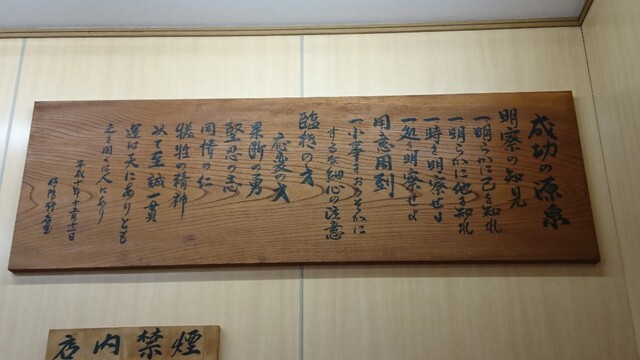 成功の源泉
明察の知見
一明らかに己を知れ
一明らかに他を知れ
一時を明察せよ
一処を明察せよ
用意周到
一小事をおろそかに
するな細心の注意
臨機の才
応変の才
果断の勇
堅忍の志
同情の仁
犠牲の精神
以て至誠一貫
運は天にありとも
之を開くは人にあり
平成十年十五月十一日
店内禁煙